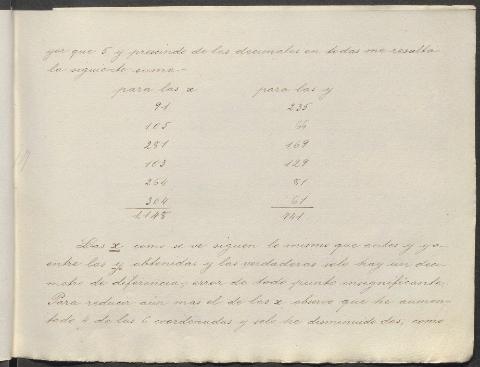 yor que 5 y prescindo de las decimales en todas me resulta
la siguiente suma-
para las x para las y
91 235
105 66
281 169
103 129
264 81
304 61
1148 741
Las x como se ve siguen lo mismo que antes y ya
entre las y obtenidas y las verdaderas solo hay un deci-
metro de diferencia, error de todo punto insignificante.
Para reducir aún mas el de las x, observo que he aumen-
tado 4 de las 6 coordenadas y solo he disminuido dos, como